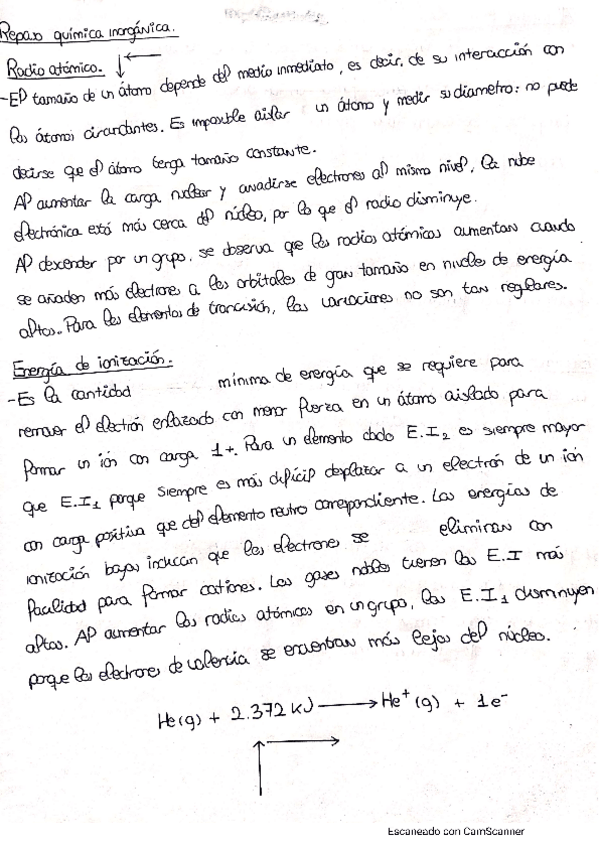 Repaso química inorgánica.
Radio atómico.
-El tamaño de un átomo depende del medio inmediato, es decir, de su interacción con
los átomos circundantes. Es imposible aislar un átomo y medir su diametro: no puede
decirse que el átomo tenga tamaño constante.
Al aumentar la carga nuclear y anadirse electrones al mismo nivel, la nube
electrónica está más cerca del núcleo, por lo que el radio disminuye.
Al descender por un grupo, se observa que los radios atómicos aumentan cuando
se añaden más electrones a los orbitales de gran tamaño en niveles de energía
altos. Para los elementos de transición, las variaciones no son tan regulares.
Energía de ionización.
-Es la cantidad mínima de energía que se requiere para
remover el electrón enlazado con menor fuerza en un átomo aislado para
formar un ión con carga 1+. Para un elemento dado E.I2 es siempre mayor
que E.I1 porque siempre es más difícil desplazar a un electrón de un ión
con carga positiva que del elemento neutro correspondiente. Las energías de
ionización bajas indican que los electrones se eliminan con
facilidad para formar cationes. Los gases nobles tienen las E.I más
altas. Al aumentar los radios atómicos en un grupo, las E.I1 disminuyen
porque los electrones de valencia se encuentran más lejos del núcleo.
He(g) + 2.372 kJ → He+ (g) + 1e-
Escaneado con CamScanner